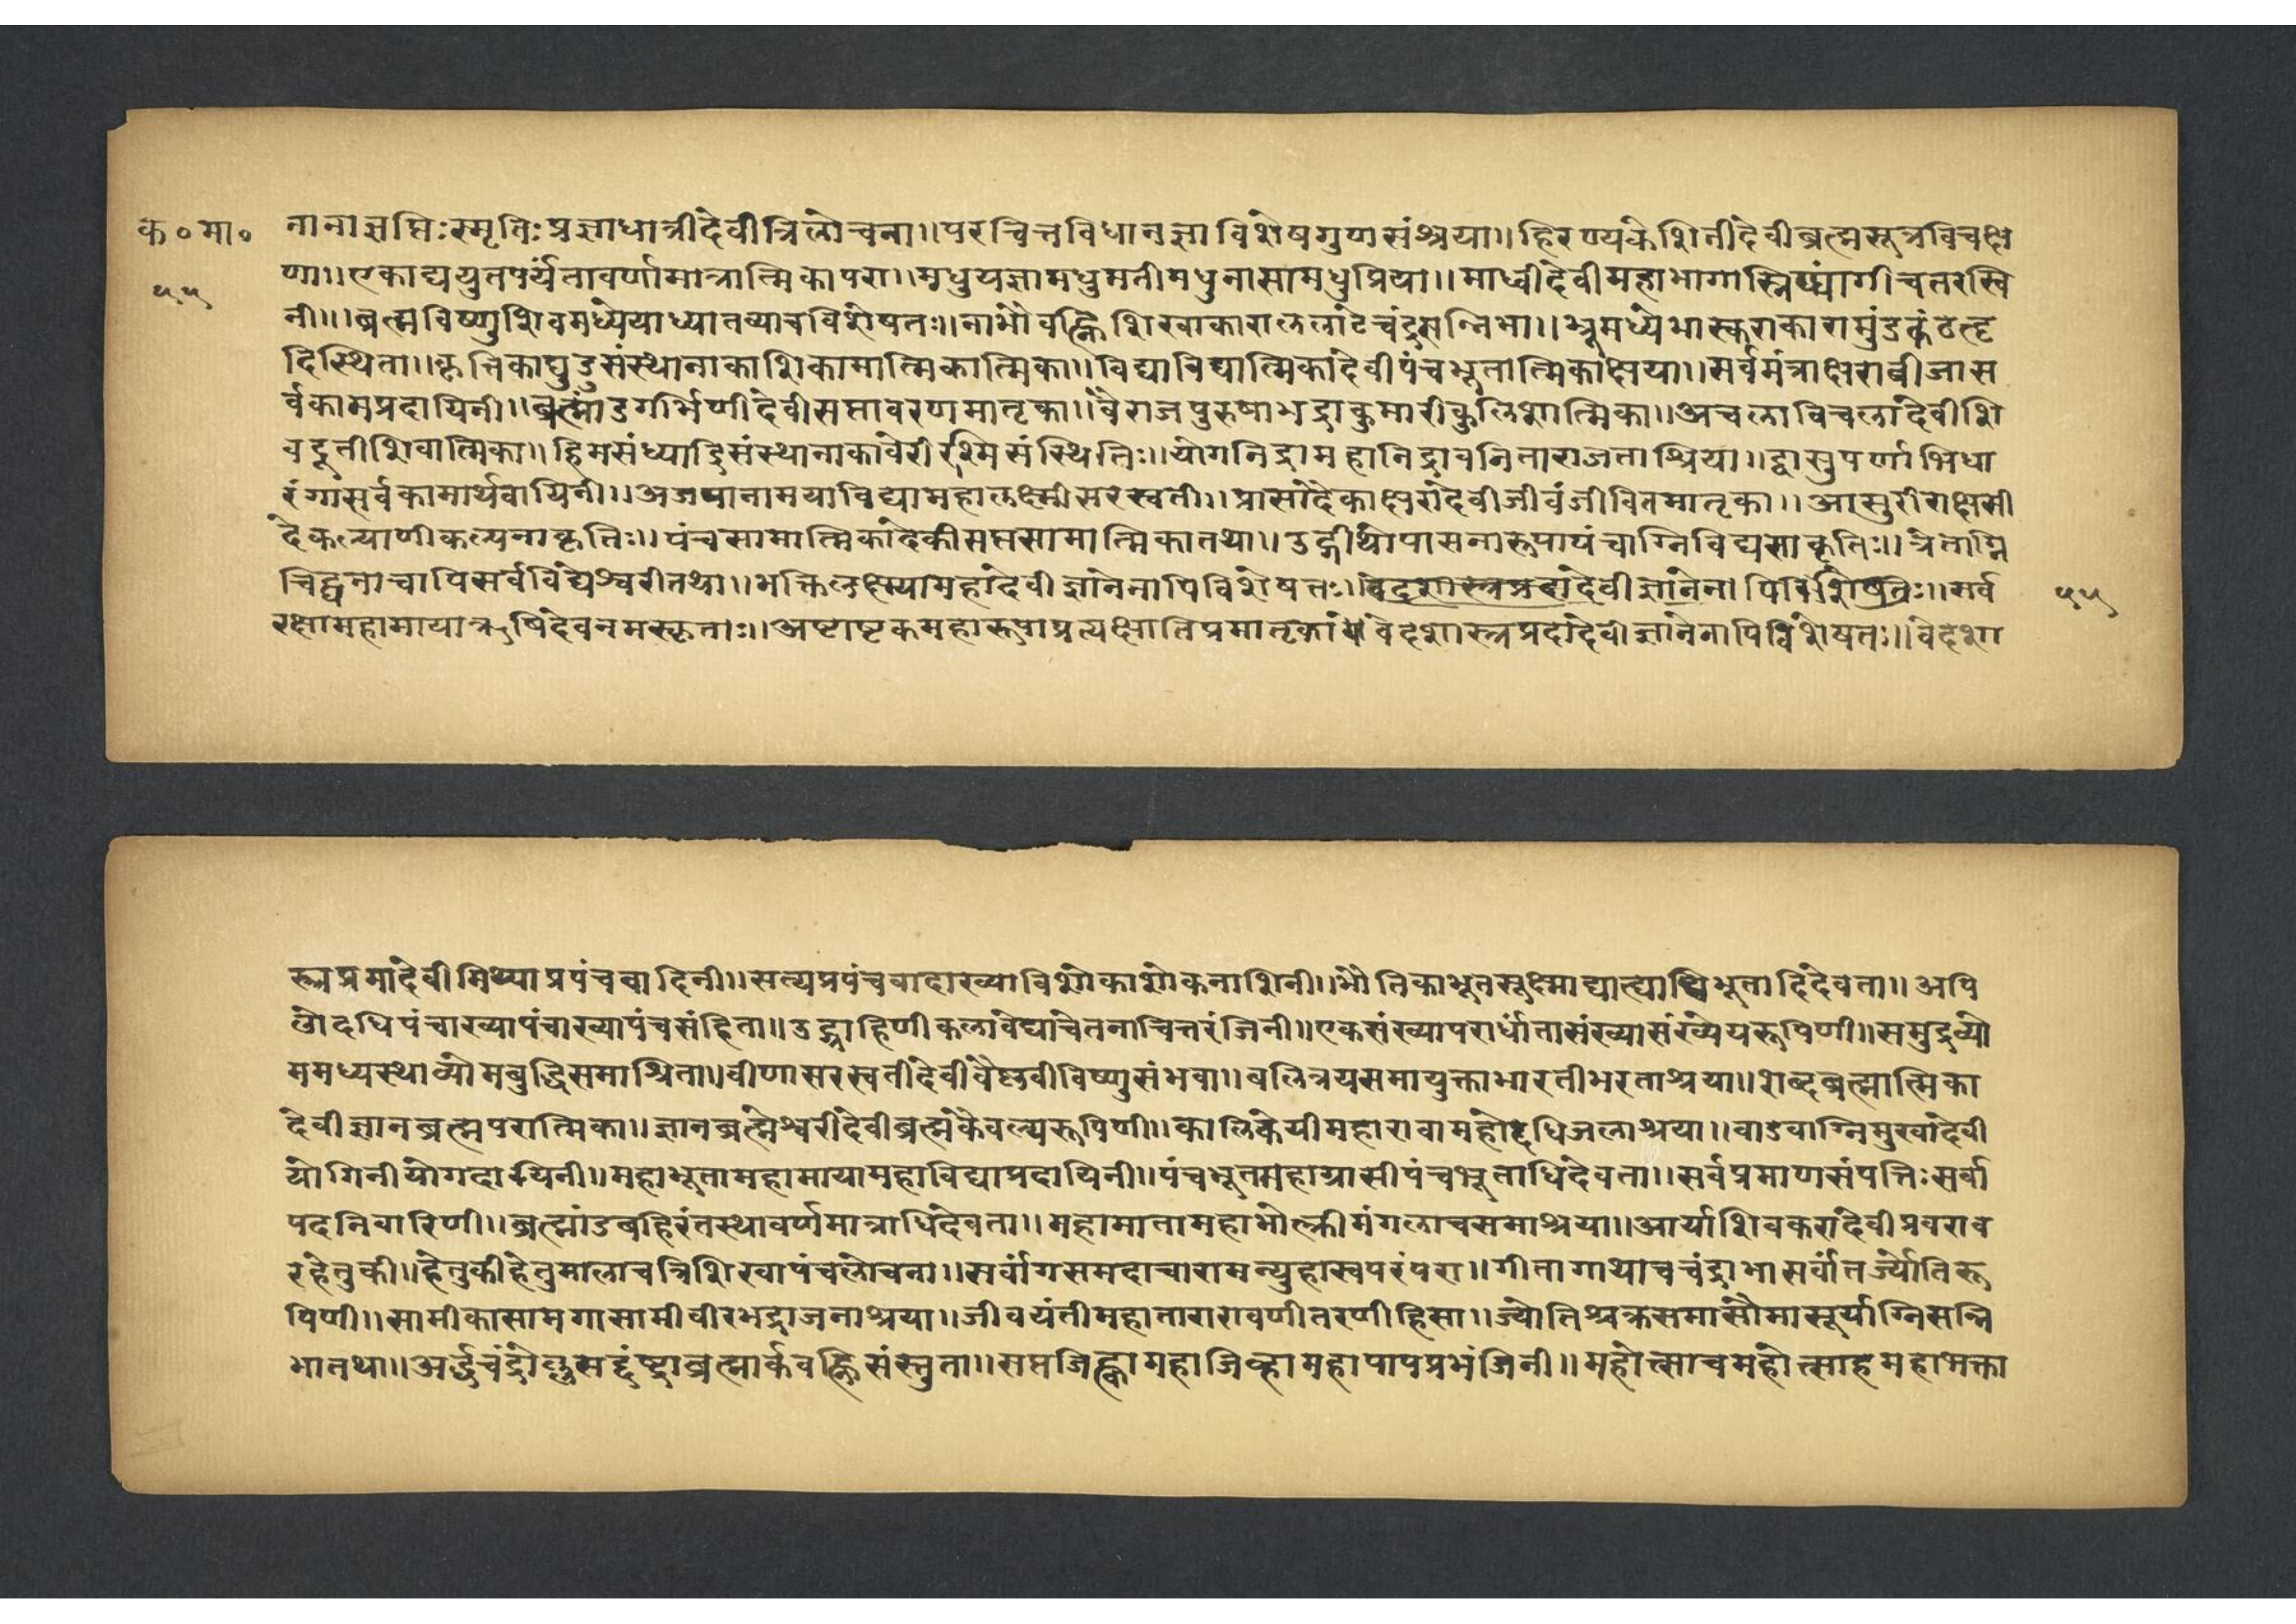 क॰मा॰ नानाज्ञप्तिःस्मृतिःप्रज्ञाधात्रीदेवीत्रिलोचना॥परचित्तविधानज्ञाविशेषगुणसंश्रया॥हिरण्यकेशिनीदेवीब्रह्मसूत्रविचक्ष
५५ णा॥एकाद्ययुतपर्यंतावर्णामात्रात्मिकापरा॥मधुयज्ञामधुमतीमधुनासामधुप्रिया॥माध्वीदेवीमहाभागास्निग्धांगीचतरस्वि
नी॥ब्रह्मविष्णुशिवमध्येयाध्यातव्याचविशेषतः॥नाभौवह्निशिखाकाराललाटेचंद्रसन्निभा॥भ्रूमध्येभास्कराकारामुंडत्कंठेत्हृ
दिस्थिता॥कृत्तिकाघुडुसंस्थानाकाशिकामात्मिकात्मिका॥विद्याविद्यात्मिकादेवीपंचभूतात्मिकाक्षया॥सर्वमंत्राक्षराबीजास
र्वकामप्रदायिनी॥ब्रह्मांडगर्भिणीदेवीसप्तावरणमातृका॥वैराजपुरुषाभद्राकुमारीकुलिशात्मिका॥अचलाविचलादेवीशि
वदूतीशिवात्मिका॥हिमसंध्याद्रिसंस्थानाकावेरीरश्मिसंस्थितिः॥योगनिद्रामहानिद्रावनिताराजताश्रिया॥द्वासुपर्णाभिधा
रंगासर्वकामार्थवायिनी॥अजपानामयाविद्यामहालक्ष्मीसरस्वती॥प्रासादेकाक्षरादेवीजीवंजीवितमातृका॥आसुरीराक्षसी
दैकल्याणीकल्पनाकृतिः॥पंचसामात्मिकादेकीसप्तसामात्मिकातथा॥उद्गीथोपासनारूपापंचाग्निविद्यसाकृतिः॥त्रेताग्नि
चिद्घनाचापिसर्वविद्येश्वरीतथा॥भक्तिलक्ष्ययामहादेवीज्ञानेनापिविशेषतः॥वेदशास्त्रप्रदादेवीज्ञानेनापिविशेषतः॥सर्व ५५
रक्षामहामायाऋषिदेवनमस्कृताः॥अष्टाष्टकमहारूपाप्रत्यक्षातिप्रमातृका॥वेदशास्त्रप्रदादेवीज्ञानेनापिविशेषतः॥वेदशा
स्त्रप्रमादेवीमिथ्याप्रपंचवादिनी॥सत्यप्रपंचवादाख्याविशोकाशोकनाशिनी॥भौतिकाभूतसूक्ष्माद्यात्प्याधिभूतादिदेवता॥अपि
लोदधिपंचाख्यापंचाख्यापंचसंहिता॥उद्ग्राहिणीकलावेद्याचेतनाचित्तरंजिनी॥एकसंख्यापरार्धांतासंख्यासंख्येयरूपिणी॥समुद्रव्यो
ममध्यस्थाव्योमबुद्धिसमाश्रिता॥वीणासरस्वतीदेवीवैष्णवीविष्णुसंभवा॥बलित्रयसमायुक्ताभारतीभरताश्रया॥शब्दब्रह्मात्मिका
देवीज्ञानब्रह्मपरात्मिका॥ज्ञानब्रह्मेश्वरीदेवीब्रह्मकैवल्यरूपिणी॥कालिकेयीमहारावामहोदधिजलाश्रया॥वाडवाग्निमुखादेवी
योगिनीयोगदायिनी॥महाभूतामहामायामहाविद्याप्रदायिनी॥पंचभूतमहाग्रासीपंचभूताधिदेवता॥सर्वप्रमाणसंपत्तिःसर्वा
पदनिवारिणी॥ब्रह्मांडबहिरंतस्थावर्णमात्राधिदेवता॥महामातामहाभोल्क्रीमंगलाचसमाश्रया॥आर्याशिवकरादेवीप्रवराव
रहेतुकी॥हेतुकीहेतुमालाचत्रिशिखापंचलोचना॥सर्वांगसमदाचारामन्युहास्वपरंपरा॥गीतागाथाचचंद्राभासर्वांतर्ज्योतिरू
पिणी॥सामीकासामगासामीवीरभद्राजनाश्रया॥जीवयंतीमहातारारावणीतरणीहिसा॥ज्योतिश्चक्रसमासौमासूर्याग्निसन्नि
भातथा॥अर्द्धचंद्रोल्लुसद्दंष्ट्राब्रह्मार्कवह्निसंस्तुता॥सप्तजिह्वामहाजिव्हामहापापप्रभंजिनी॥महोत्साचमहोत्साहमहाभक्ता